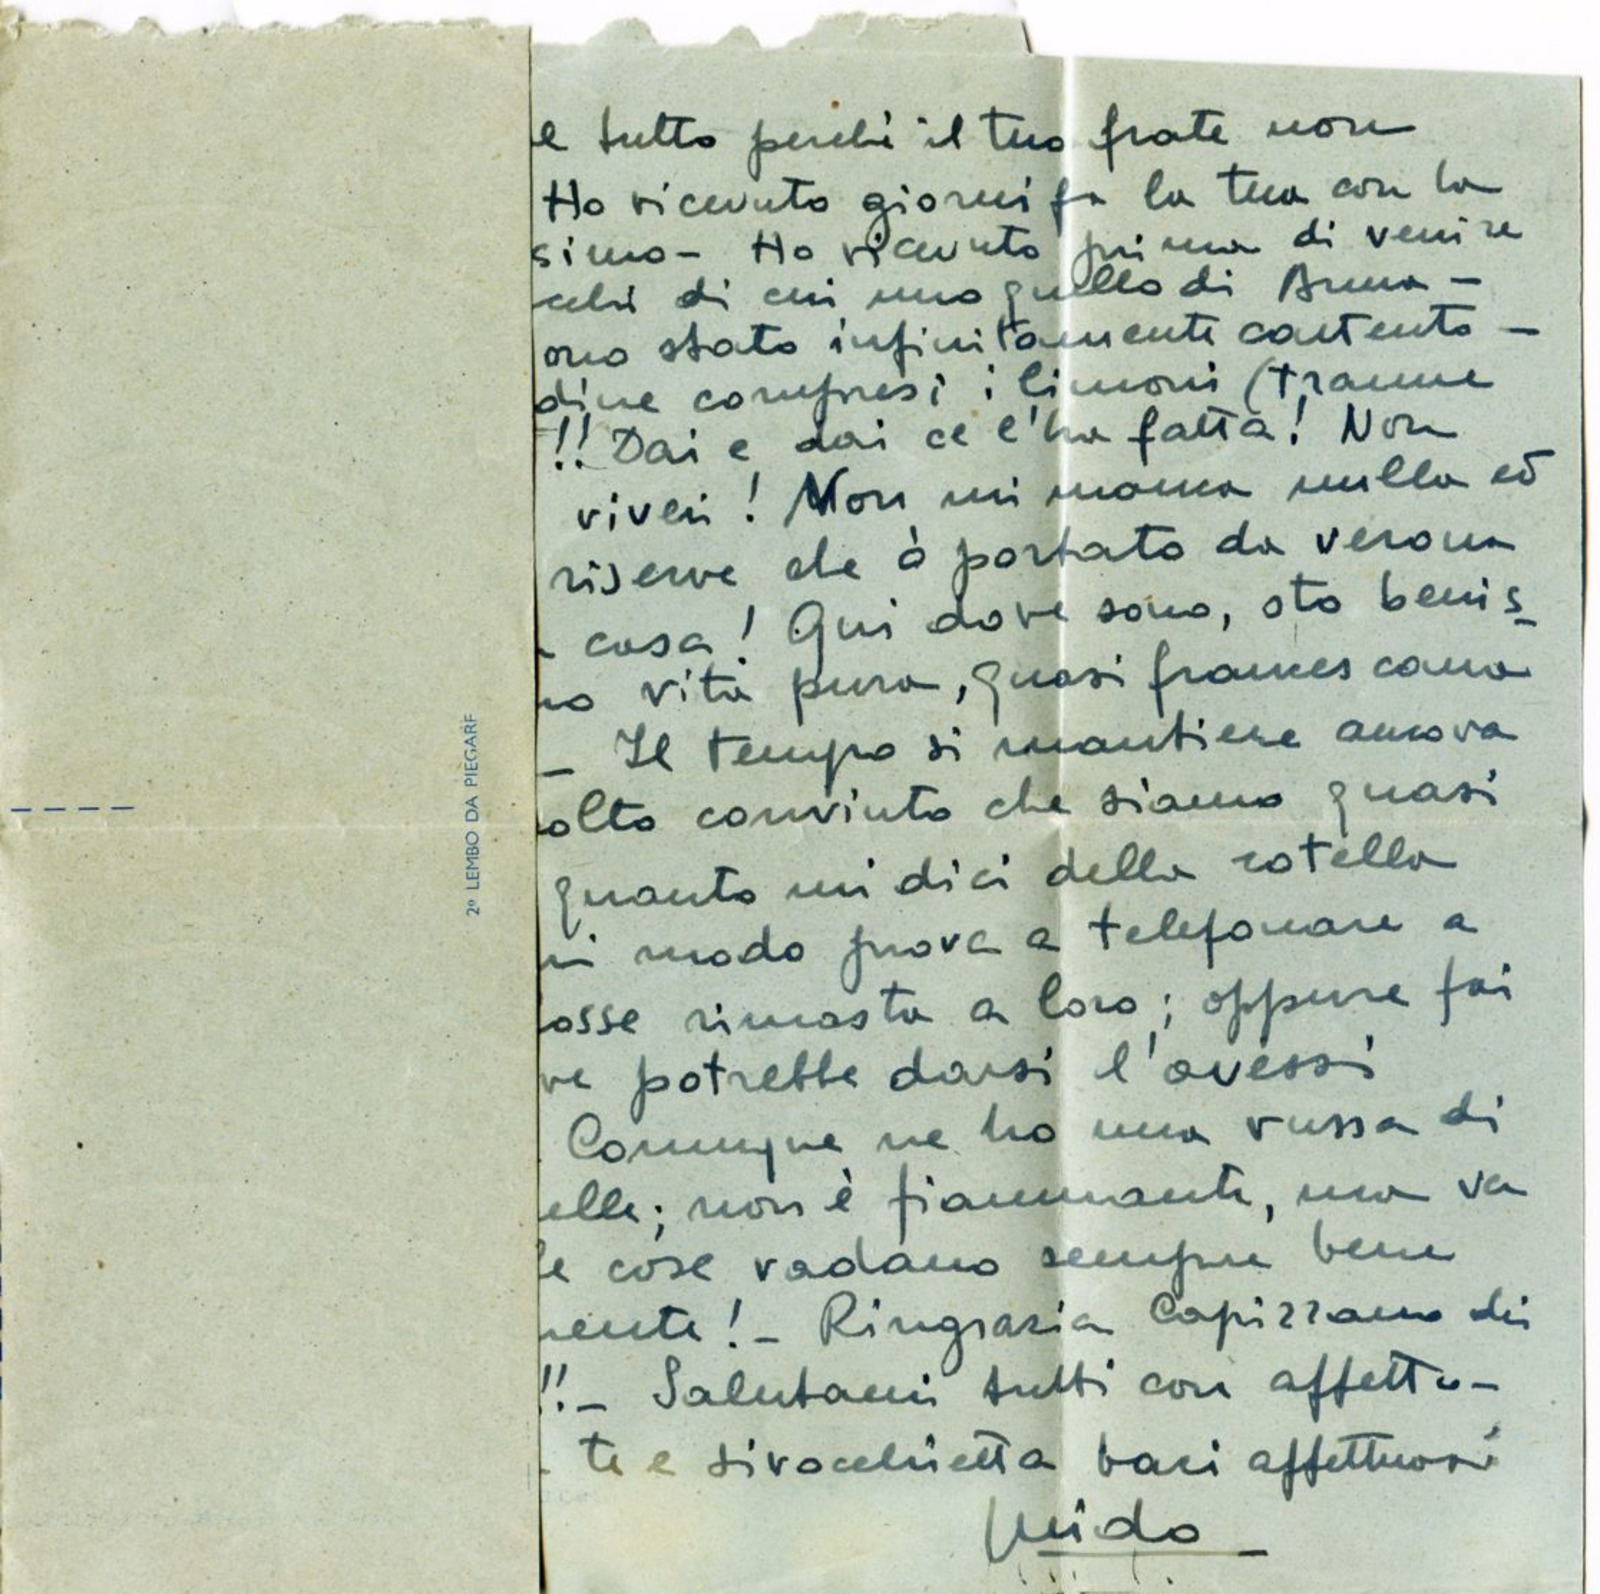 2º LEMBO DA PIEGARE
e tutto perchè il tuo frate non
Ho ricevuto giorni fa la tua con la
simo - Ho ricevuto prima di venire
cchi di cui uno quello di Anna -
ono stato infinitamente contento -
dine compresi i limoni (tranne
!! Dai e dai ce l'ha fatta! Non
viveri! Non mi manca nulla ed
riserve che ò portato da verona
casa! Qui dove sono, sto benis-
no vita pura, quasi francescana
- Il tempo si mantiene ancora
olto convinto che siamo quasi
quanto mi dici della rotella
ni modo prova a telefonare a
osse rimasta a loro; oppure fai
ve potrebbe darsi l'avessi
Comunque ne ho una russa di
elle; non è fiammante, ma va
le cose vadano sempre bene
mente! - Ringrazia Capizzano dei
!! - Salutami tutti con affetto -
- te e sivocchietta baci affettuosi
Guido -